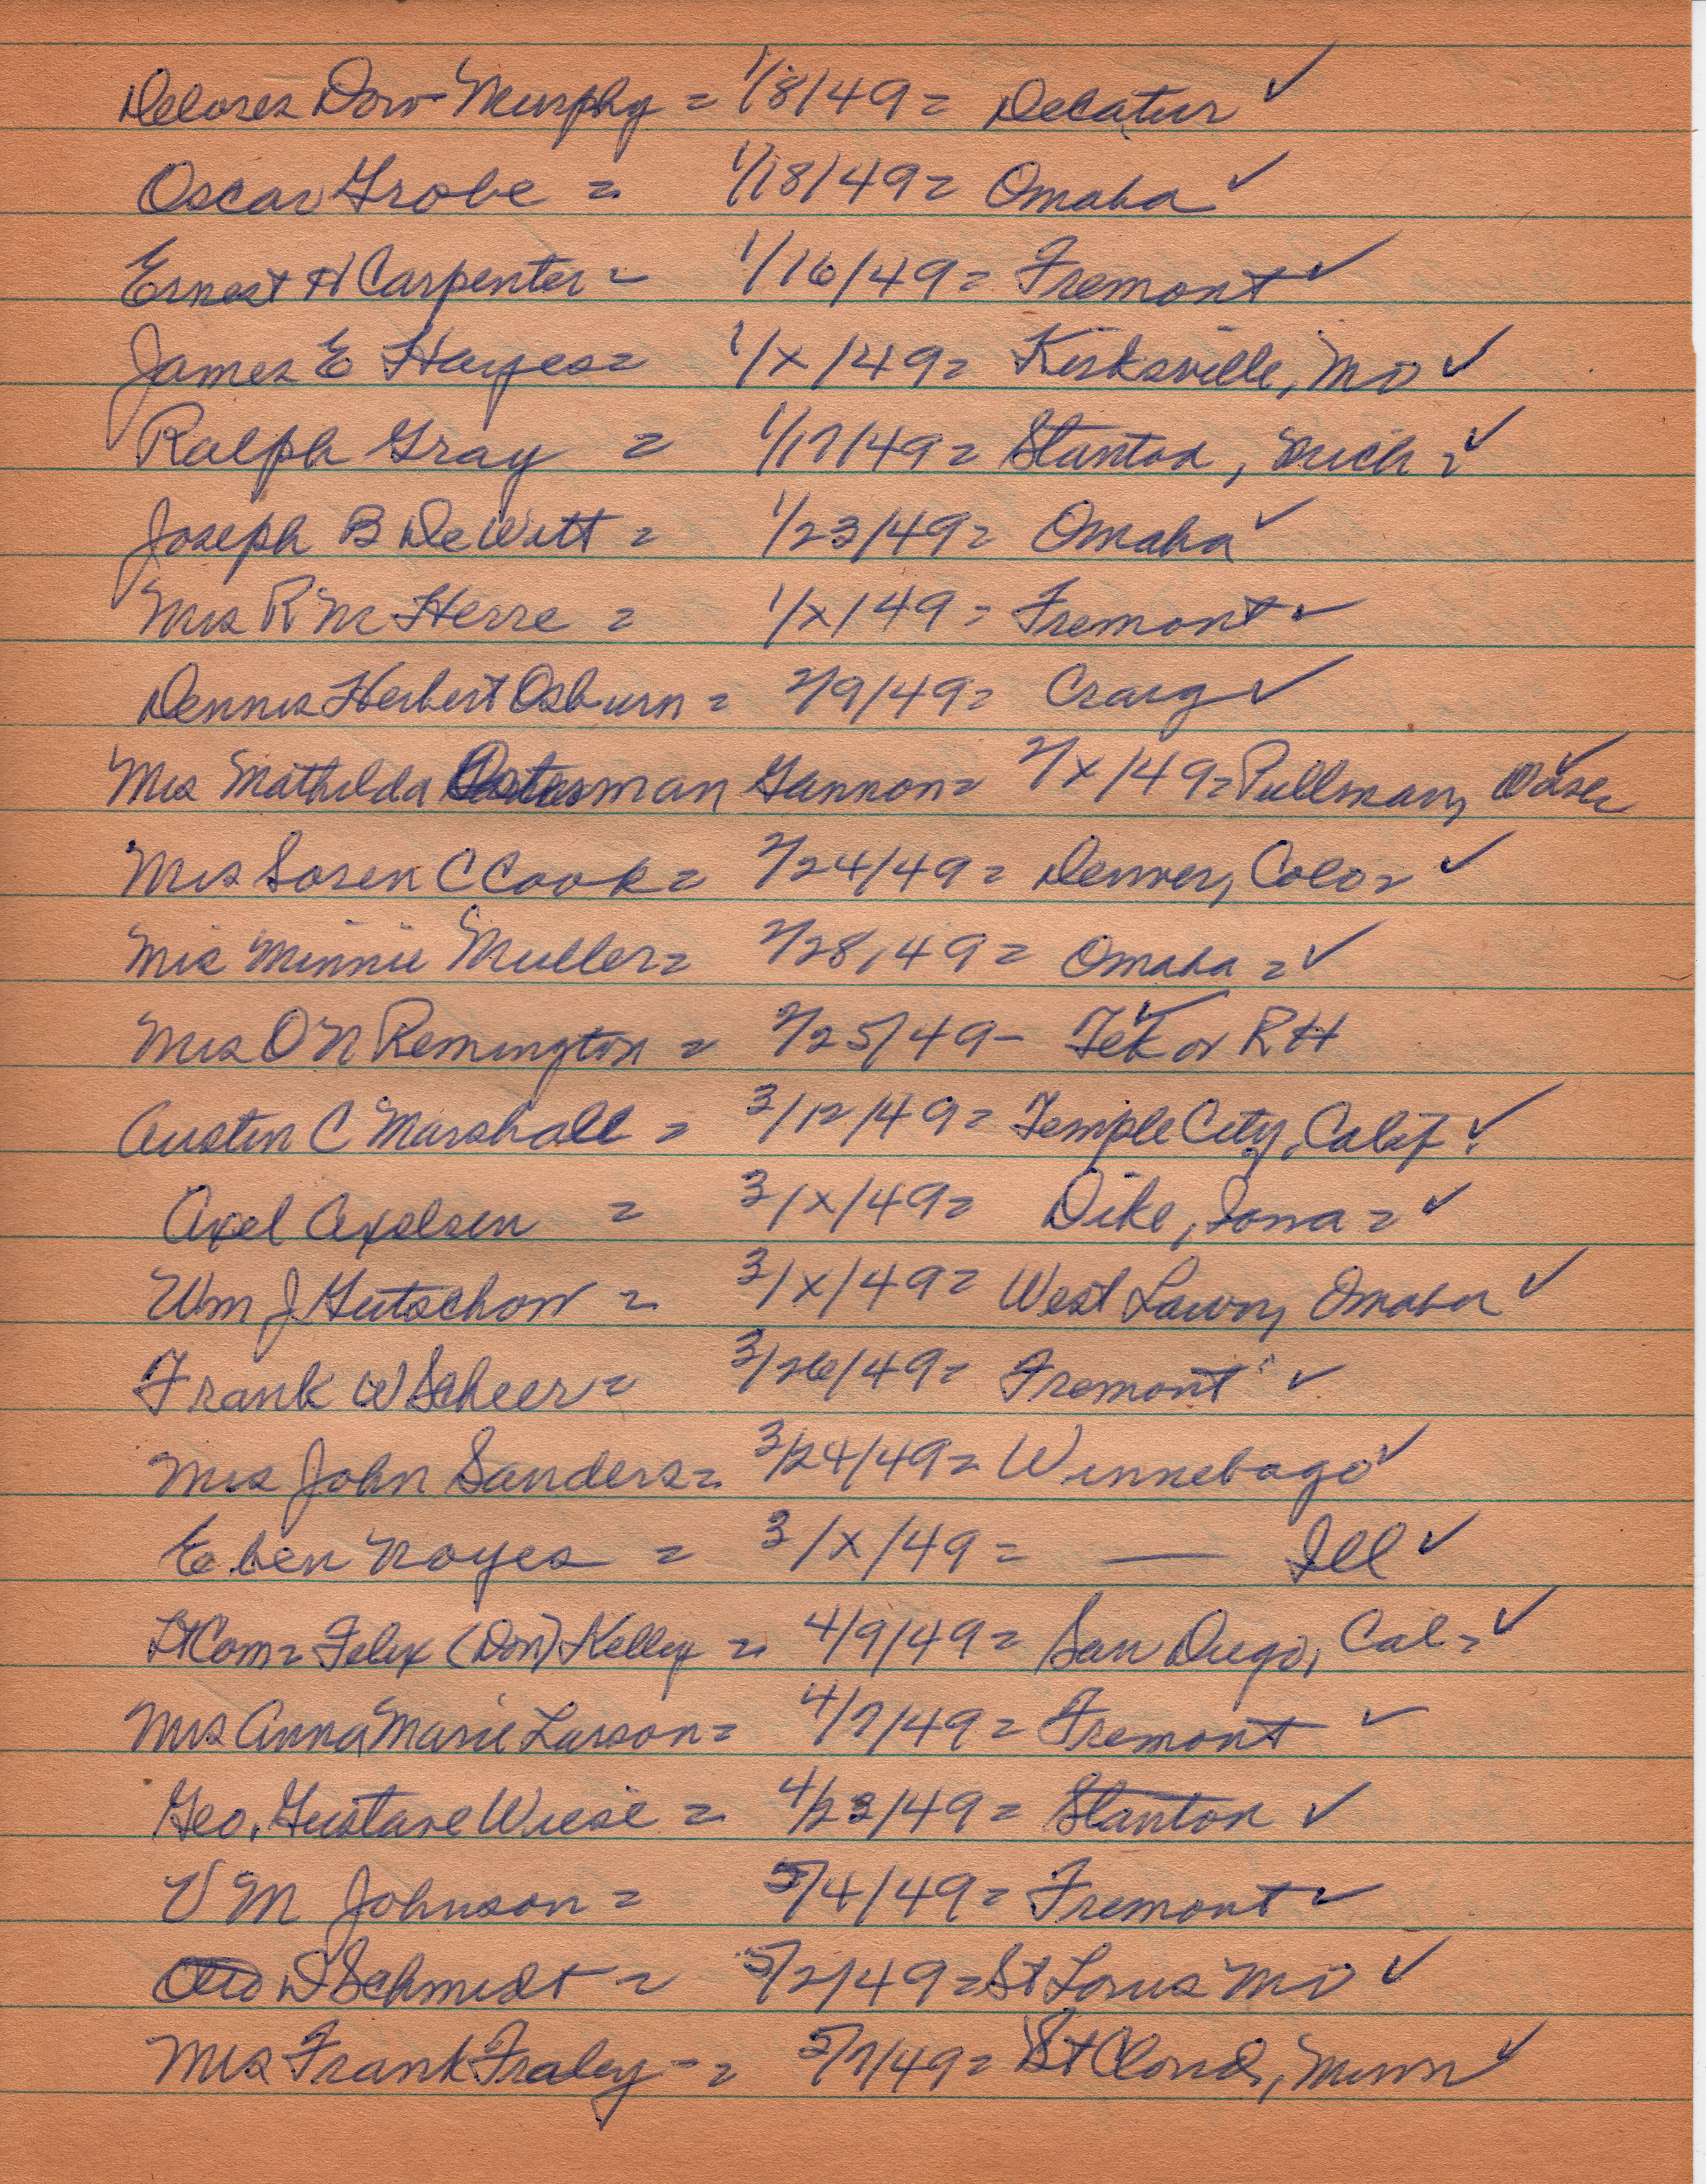 Delores Dow Murphy = 1/8/49 = Decatur ✓
Oscar Grobe = 1/18/49 = Omaha ✓
Ernest H Carpenter = 1/16/49 = Fremont ✓
James E Hayes = 1/x/49 = Kirksville, Mo ✓
Ralph Gray = 1/17/49 = Stanton, Mich = ✓
Joseph B DeWitt = 1/23/49 = Omaha ✓
Mrs R M Herre = 1/x/49 = Fremont ✓
Dennis Herbert Osburn = 2/9/49 = Craig ✓
Mrs Mathilda Ostesman Gannon = 2/x/49 = Pullman, ✓
Mrs Soren C Cook = 2/24/49 = Denver, Colo = ✓
Mrs Minnie Muller = 2/28/49 = Omaha = ✓
Mrs O N Remington = 2/25/49 - Tek or RH ✓
Austin C Marshall = 3/12/49 = Temple City, Calif ✓
Axel Axelsen = 3/x/49 = Dike, Iowa = ✓
Wm J Gutschow = 3/x/49 = West Lawn, Omaha ✓
Frank W Scheer = 3/26/49 = Fremont ✓
Mrs John Sanders = 3/24/49 = Winnebago ✓
Eben Noyes = 3/x/49 = — Ill ✓
Lt Com = Felix (Don) Kelley = 4/9/49 = San Diego, Cal = ✓
Mrs Anna Marie Larson = 4/7/49 = Fremont ✓
Geo. Gustave Wiese = 4/23/49 = Stanton ✓
V M Johnson = 5/4/49 = Fremont ✓
Otto D Schmidt = 5/2/49 = St Louis Mo ✓
Mrs Frank Fraley - = 5/7/49 = St Cloud, Minn ✓